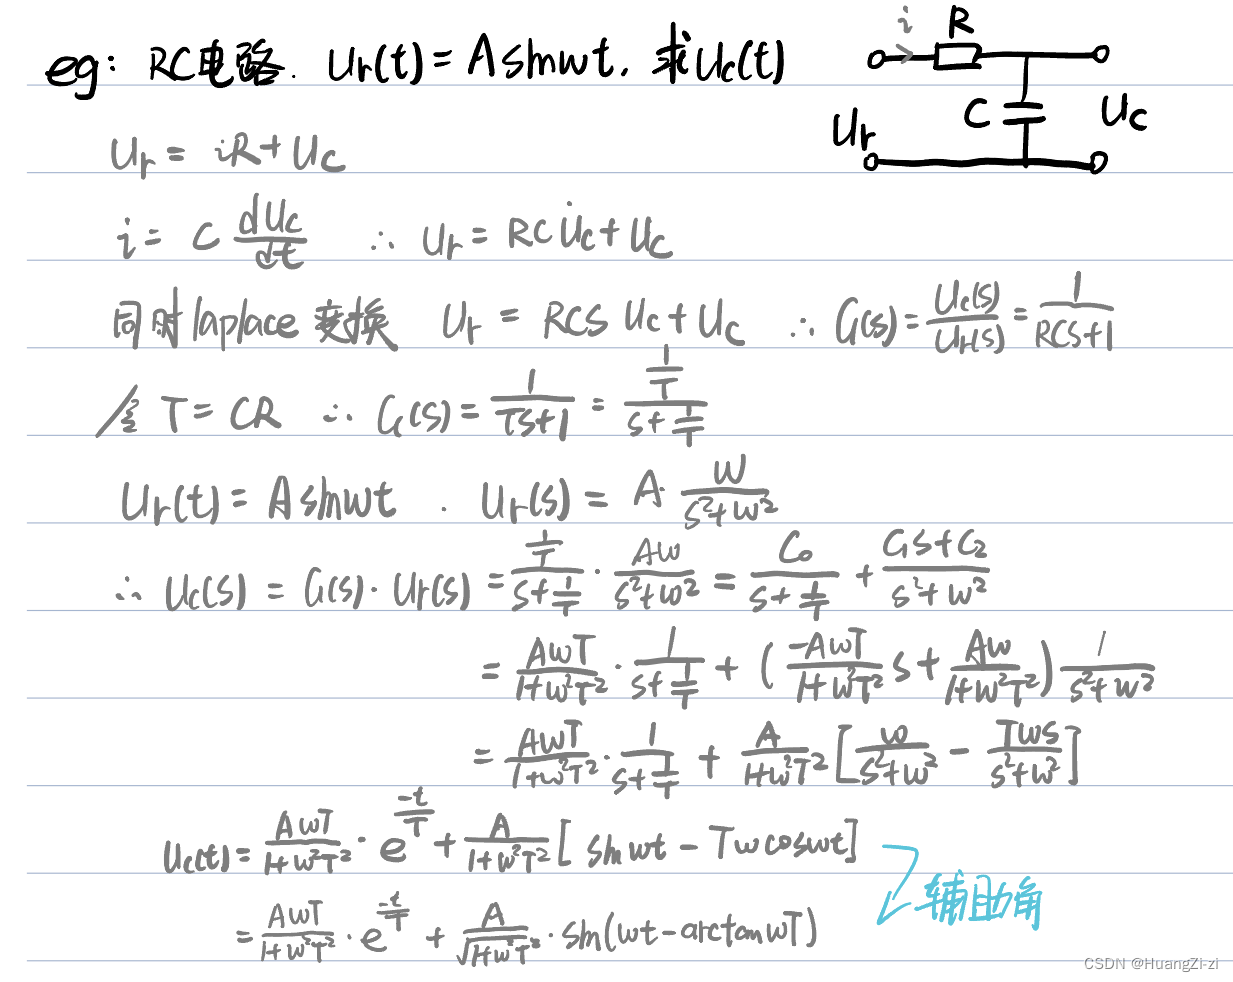 eg: RC电路. Ur(t) = A sinwt, 求Uc(t)
i R
C Ur Uc
Ur = iR + Uc
i = C dUc/dt ∴ Ur = RC U̇c + Uc
同时laplace变换 Ur = RCS Uc + Uc ∴ G(s) = Uc(s)/Ur(s) = 1/(RCS+1)
令 T = CR ∴ G(s) = 1/(TS+1) = (1/T)/(S+1/T)
Ur(t) = A sinwt . Ur(s) = A · w/(s²+w²)
∴ Uc(s) = G(s) · Ur(s) = (1/T)/(S+1/T) · Aw/(s²+w²) = C₀/(S+1/T) + (C₁S+C₂)/(s²+w²)
= AwT/(1+w²T²) · 1/(S+1/T) + (-AwT/(1+w²T²) S + Aw/(1+w²T²)) 1/(s²+w²)
= AwT/(1+w²T²) · 1/(S+1/T) + A/(1+w²T²) [w/(s²+w²) - Tws/(s²+w²)]
Uc(t) = AwT/(1+w²T²) · e^(-t/T) + A/(1+w²T²) [sinwt - Tw coswt]
辅助角
= AwT/(1+w²T²) · e^(-t/T) + A/√(1+w²T²) · sin(wt - arctan wT)
CSDN @HuangZi-zi